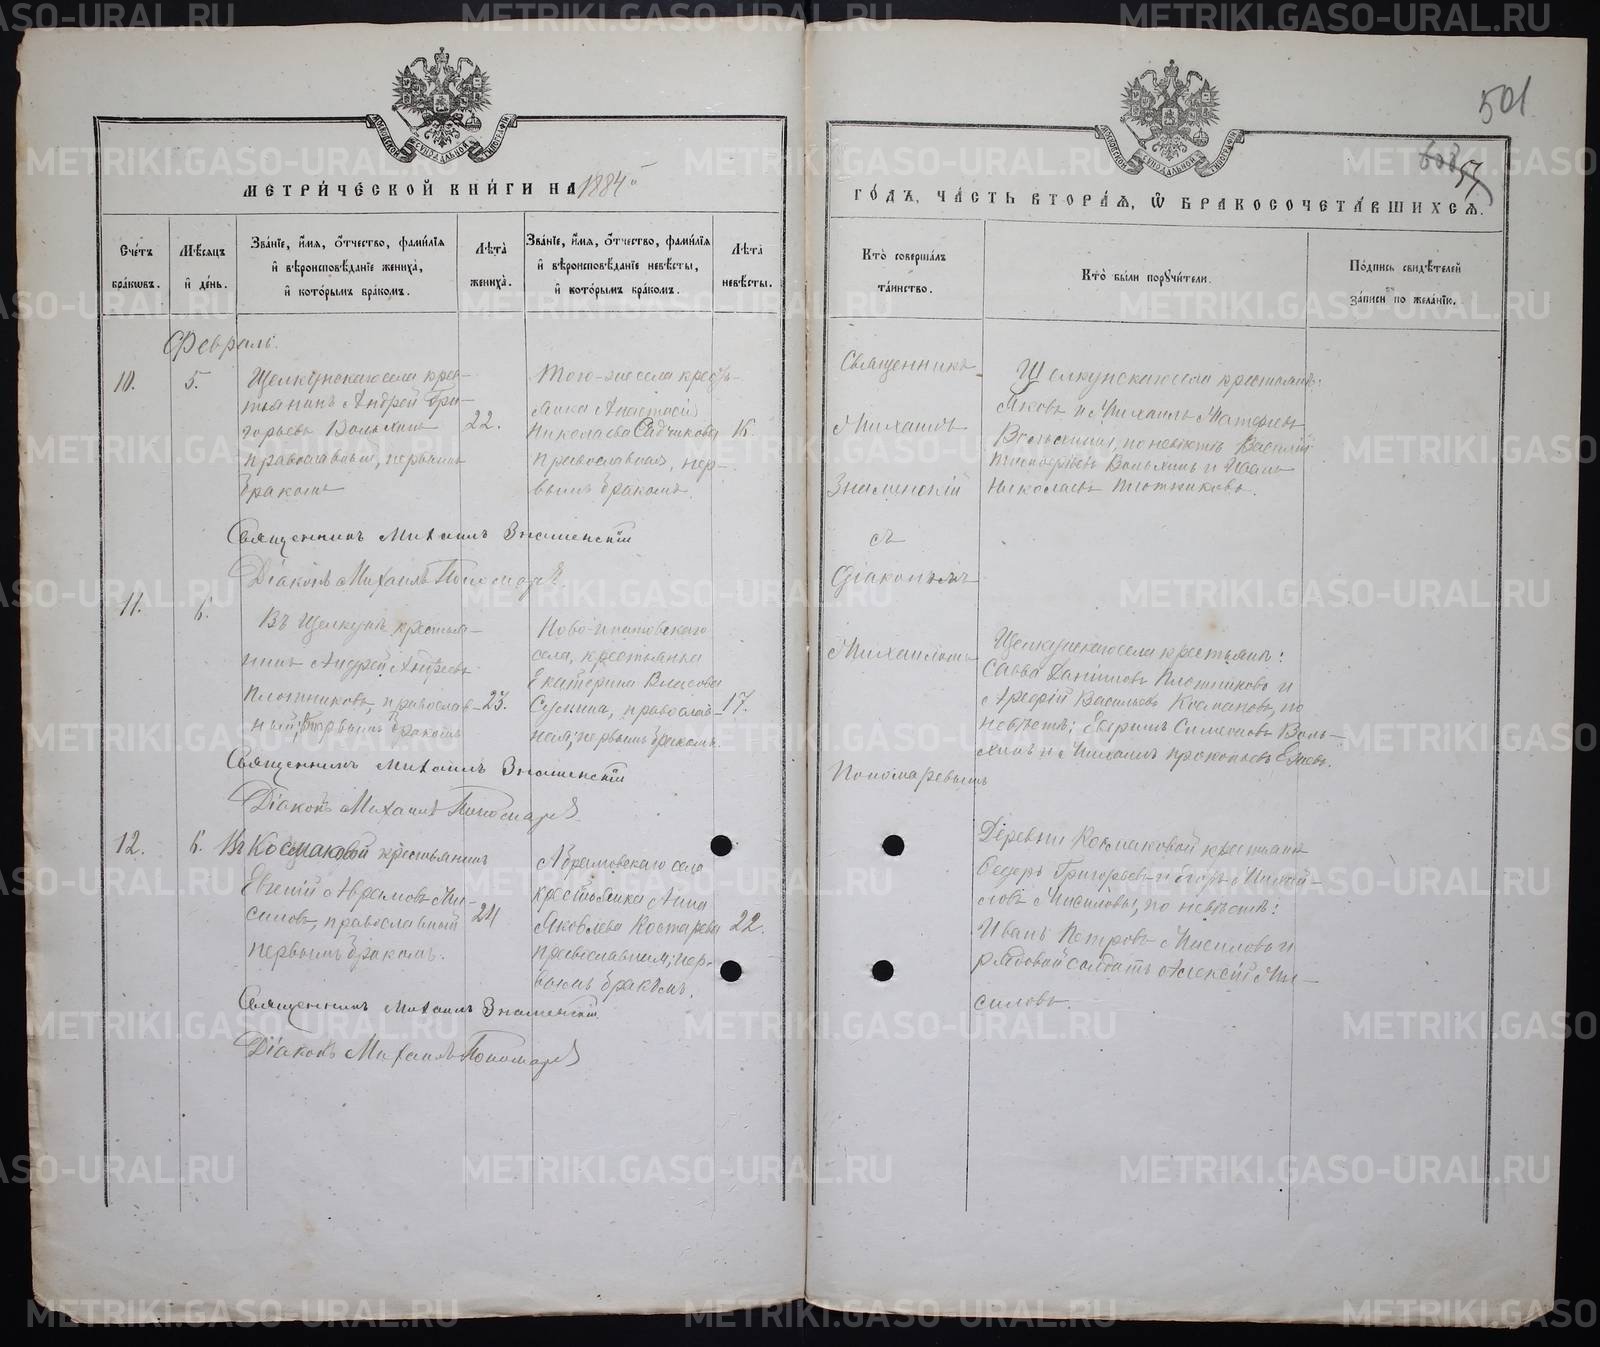 501
608
57
МЕТРИЧЕСКОЙ КНИГИ НА 1884 й
ГОДЪ, ЧАСТЬ ВТОРАЯ, Ѡ БРАКОСОЧЕТАВШИХСЯ.
Счетъ браковъ.
Мѣсяцъ и день.
Званіе, имя, отчество, фамилія и вѣроисповѣданіе жениха, и которымъ бракомъ.
Лѣта жениха.
Званіе, имя, отчество, фамилія и вѣроисповѣданіе невѣсты, и которымъ бракомъ.
Лѣта невѣсты.
Кто совершалъ таинство.
Кто были поручители.
Подпись свидѣтелей записи по желанію.
Февраль.
10.
5.
Щелкунскаго села крес-
тьянинъ Андрей Гри-
горьевъ Вольхинъ
православный, первымъ
бракомъ
22.
Того-же села кресть-
янка Анастасія
Николаева Садчикова
православная, пер-
вымъ бракомъ.
16.
Священникъ
Михаилъ
Знаменскій
съ
Діакономъ
Михаиломъ
Пономаревымъ
Щелкунскаго села крестьяне:
Яковъ и Михаилъ Матфіевы
по невѣстѣ Василій
Вольхинъ и Иванъ
Николаевъ Плотниковъ.
Священникъ Михаилъ Знаменскій
Діаконъ Михаилъ Пономаревъ
11.
6.
Въ Щелкунѣ крестья-
нинъ Андрей Андреевъ
Плотниковъ, православ-
ный, бракомъ
23.
Ново-Ипатовскаго
села, крестьянка
Екатерина Власова
православ-
ная, первымъ бракомъ.
17.
Щелкунскаго села крестьяне:
Савва Даниловъ Плотниковъ и
Васильевъ Космаковъ, по
невѣстѣ: Ефремъ Симеоновъ Воль-
хинъ и Михаилъ Прокопьевъ
Священникъ Михаилъ Знаменскій
Діаконъ Михаилъ Пономаревъ
12.
6.
Въ Космаковой крестьянинъ
Евгеній Авраамовъ Ми-
силовъ, православный
первымъ бракомъ.
24
Абрамовскаго села
крестьянка Анна
Яковлева Костарева
православная, пер-
вымъ бракомъ.
22.
Деревни Космаковой крестьяне
Федоръ Григорьевъ и Егоръ Михай-
ловъ Мисиловы, по невѣстѣ:
Иванъ Петровъ Мисиловъ и
рядовой солдатъ Алексѣй Ми-
силовъ.
Священникъ Михаилъ Знаменскій
Діаконъ Михаилъ Пономаревъ
METRIKI.GASO-URAL.RU